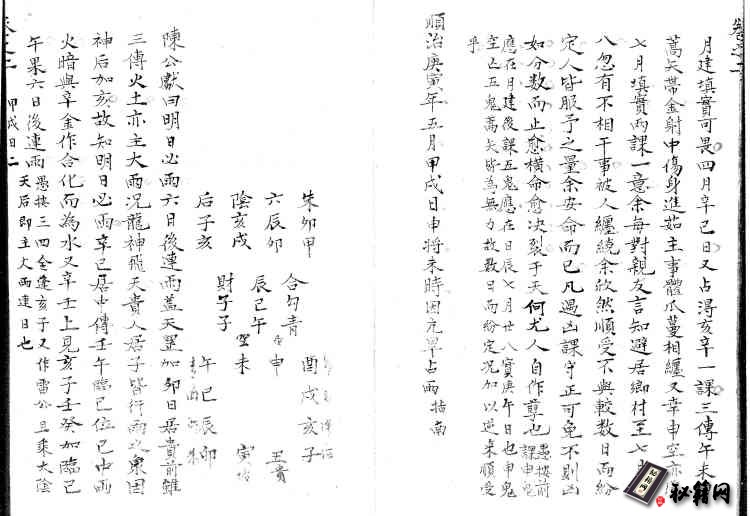 月建填實可畏四月辛巳日又占得亥辛一課三傳午未
蒿矢帶金射中傷身進茹主事體瓜蔓相纏又幸申空亦
七月填實两課一意余每對親友言知避居鄉村至七
八忽有不相干事被人纏繞余欣然順受不與較數日而紛
定人皆服予之量余安命而已凡遇凶課守正可免不則凶
如分數而止愈橫命愈决裂于天何尤人自作孽也愚按前課申鬼
應在月建後課五鬼應在日辰七月廿八實庚午日也申鬼
空亡五鬼蒿矢皆為無力故數日而紛定况加以逆來順受
乎
順治庚寅年五月甲戌日申將未時因亢旱占雨 指南
朱卯甲
六辰卯
陰亥戌
后子亥
財子子
合勾青
辰巳午
空未
申
酉戌亥子
午巳辰卯
陳公獻曰明日必雨六日後連雨蓋天罡加卯日居貴前雖
三傳火土亦主大雨况龍神飛天貴人居子皆行雨之象因
神后加亥故知明日必雨辛巳居中傳壬午臨巳位巳中丙
火暗與辛金作合化而為水又辛壬上見亥子壬癸加臨巳
午果六日後連雨愚按三四全逢亥子又作雷公且乘太陰
天后即主大雨連日也
甲戌日二
秘籍网